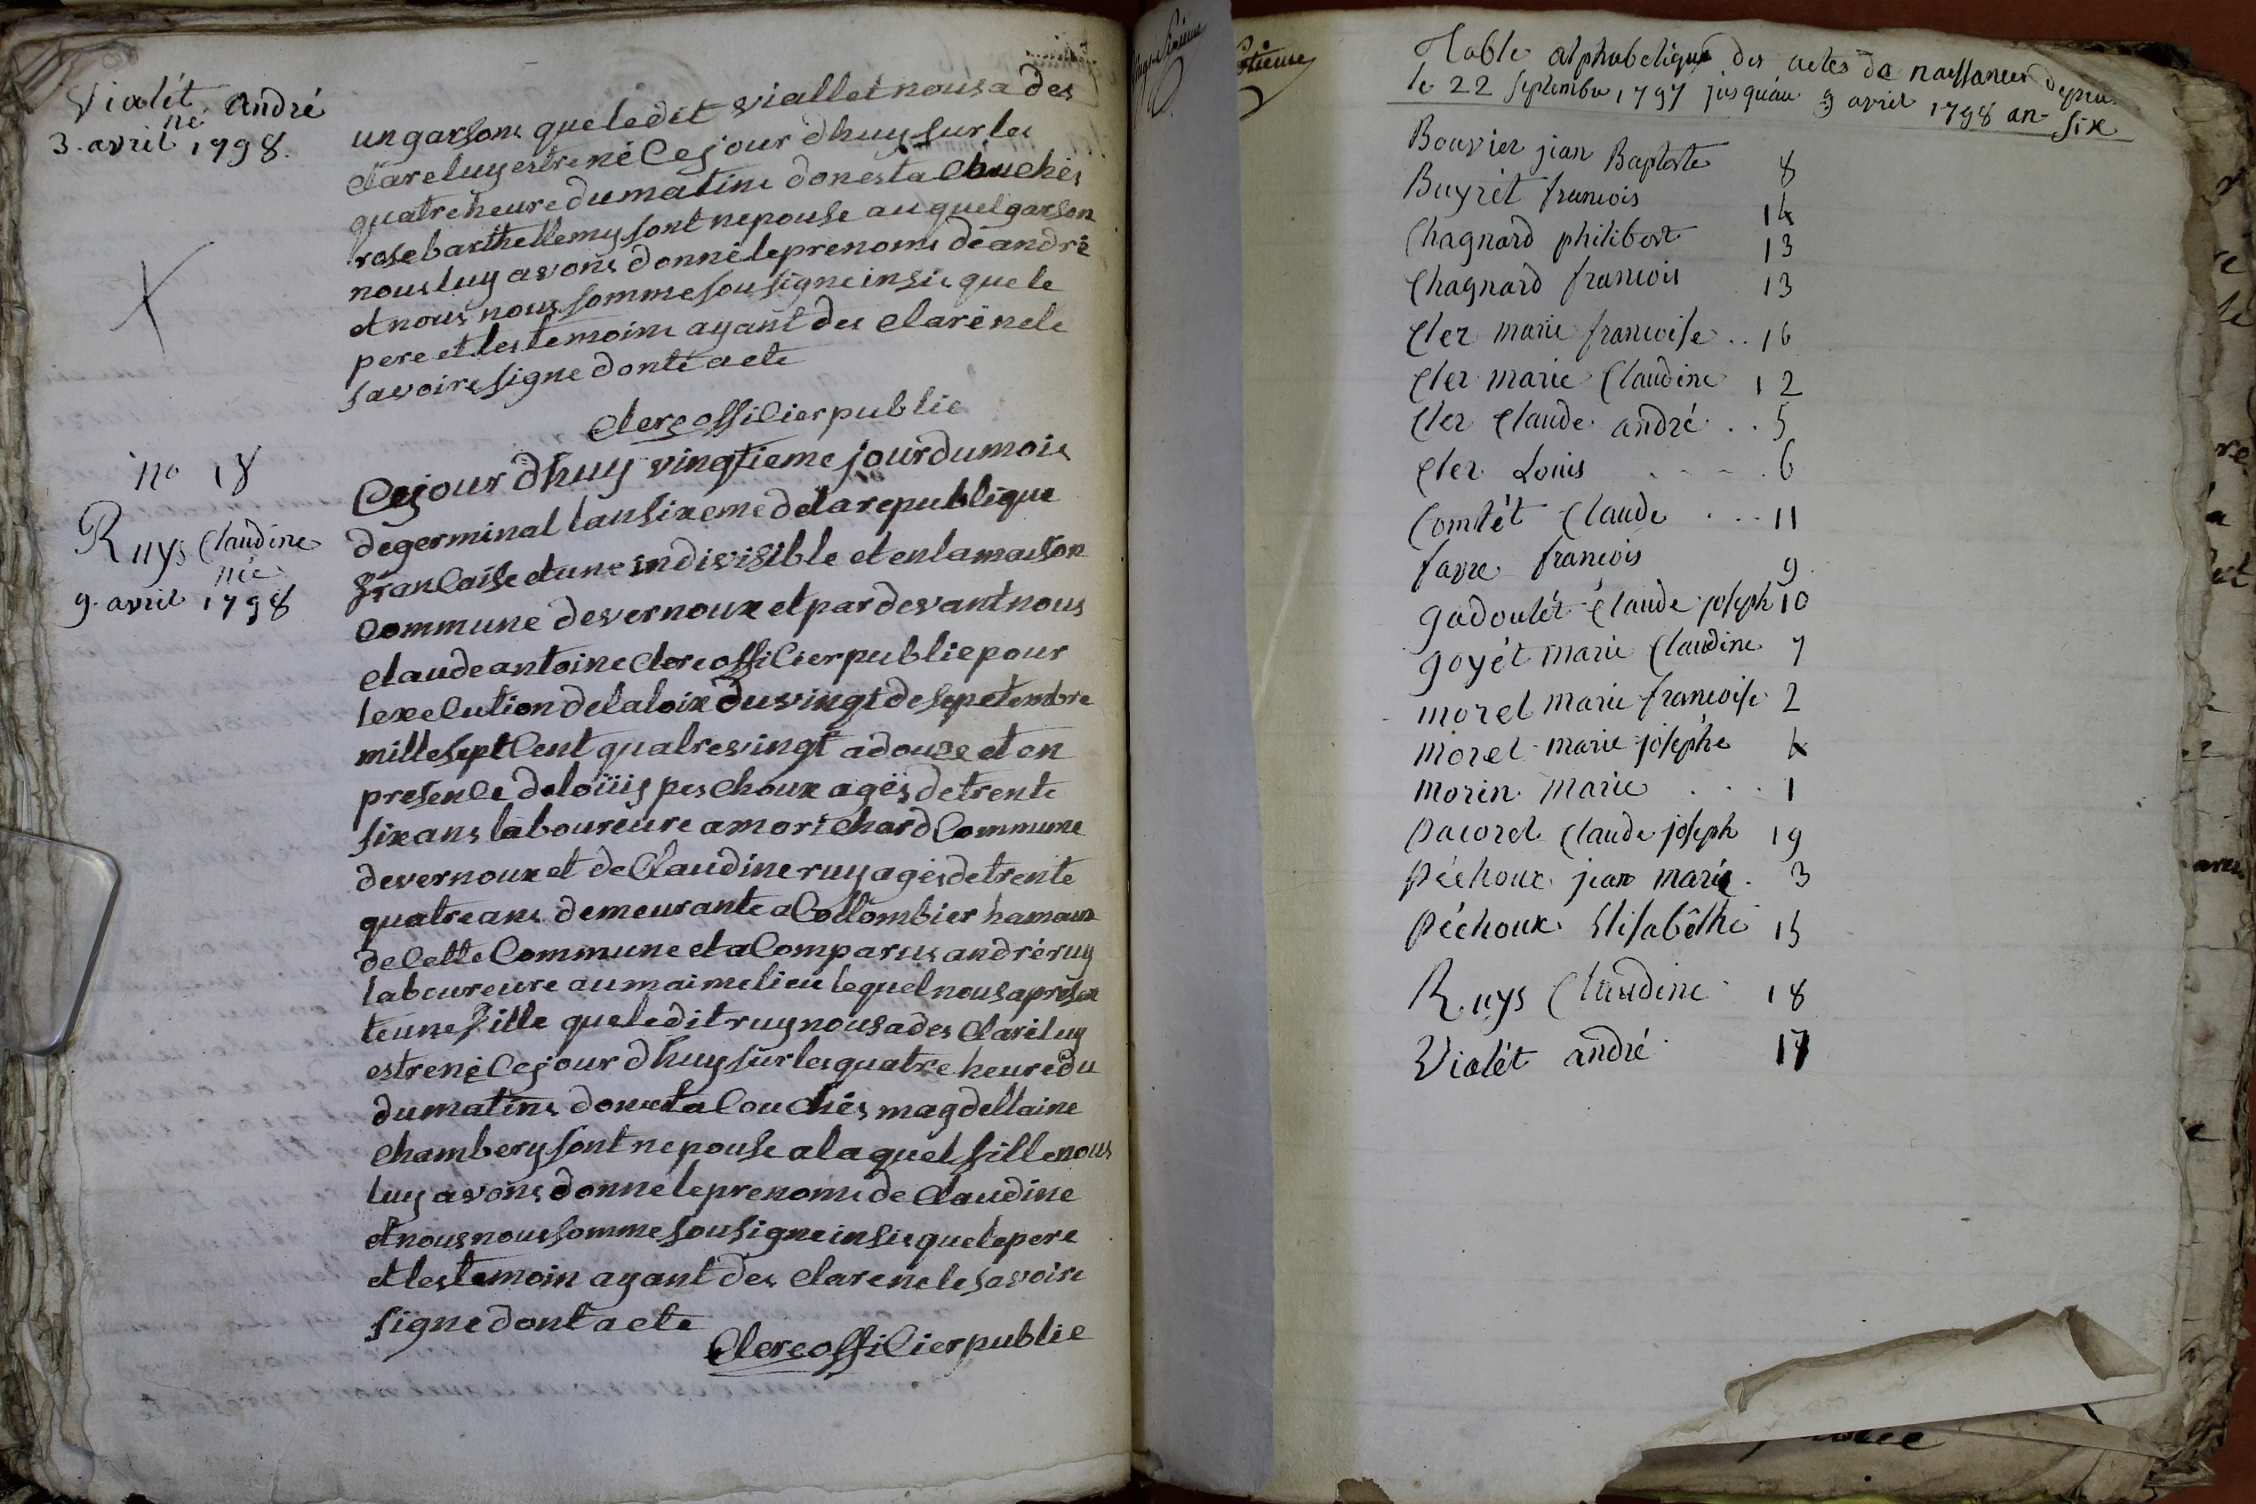 Violét André
né
3. avril 1798.
un garsons que le dit viallet nous a des
clare luy estre né Ce jour d huy sur les
quatre heure du matins don est a Couchés
rose barthellemy sont nepouse au quel garson
nous luy avons donné le prenoms de andré
et nous nous somme sousigne insis que le
pere et les temoins ayant des clarë ne le
savoire signe donté acte
Clerc offilier publie
no 18
Ruys Claudine
née
9. avril 1798
Ce jour d huy vingtieme jour du mois
de germinal lan sixeme de la republique
franCaise et une indivisible et en la maison
Commune de vernoux et par devant nous
claude antoine Clerc offiCier publie pour
lexeCution de la loix du vingt de sepetembre
mille sept Cent quatre vingt a douze et en
presenCe de loüis pesChoux agés de trente
six ans laboureure a moriChard Commune
de vernoux et de Claudine ruy agés de trente
quatre ans demeurante a Collombier hamaux
de Cette Commune et a Comparus andré ruy
laboureure au maime lieu le quel nous a presen
te une fille que le dit ruy nous a des Claré luy
estre né Ce jour d huy sur les quatre heure du
du matins don est a Couchés magdellaine
Chambery sont nepouse a la quel fille nous
luy avons donné le prenoms de Claudine
et nous nous somme sousigne insis que le pere
et les temoin ayant des clare ne le savoire
signe dont acte
Clerc offiCier publie
Table alphabetique des actes de naissances depuis
le 22 septembre 1797 jusqu'au 9 avril 1798 an-six
Bouvier jean Baptiste 8
Buyrét francois 14
Chagnard philibert 13
Chagnard francois 13
Cler marie francoise .. 16
Cler marie Claudine 12
Cler Claude andré .. 5
Cler Louis . - - . 6
Comtét Claude . .. 11
favre francois 9
gadoulét Claude joseph 10
goyét marie Claudine 7
morel marie francoise 2
morel marie joséphe 4
morin Marie . . . 1
Pacorel Claude joseph 19
Péchoux jean marie . 3
Péchoux Elisabêthe 15
Ruys Claudine 18
Violét andré 17